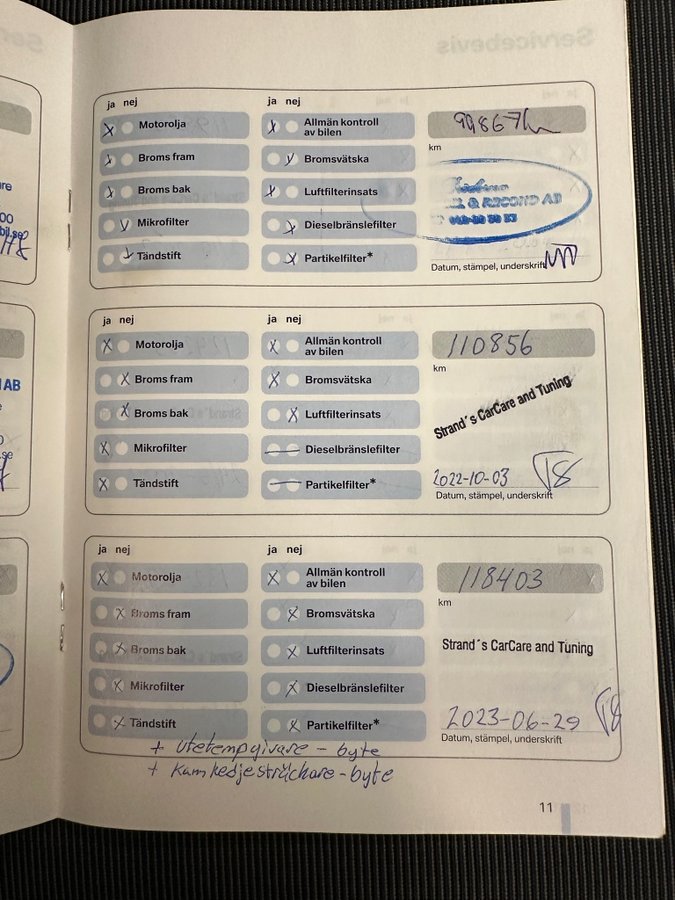 Servicebevis
ja nej
Motorolja
Broms fram
Broms bak
Mikrofilter
Tändstift
ja nej
Allmän kontroll
av bilen
Bromsvätska
Luftfilterinsats
Dieselbränslefilter
Partikelfilter*
99867
km
& RECOND AB
Datum, stämpel, underskrift
ja nej
Motorolja
Broms fram
Broms bak
Mikrofilter
Tändstift
ja nej
Allmän kontroll
av bilen
Bromsvätska
Luftfilterinsats
Dieselbränslefilter
Partikelfilter*
110856
km
Strand´s CarCare and Tuning
2022-10-03
Datum, stämpel, underskrift
ja nej
Motorolja
Broms fram
Broms bak
Mikrofilter
Tändstift
ja nej
Allmän kontroll
av bilen
Bromsvätska
Luftfilterinsats
Dieselbränslefilter
Partikelfilter*
118403
km
Strand´s CarCare and Tuning
2023-06-29
Datum, stämpel, underskrift
+ utetempgivare - byte
+ Kamkedjesträckare - byte
11